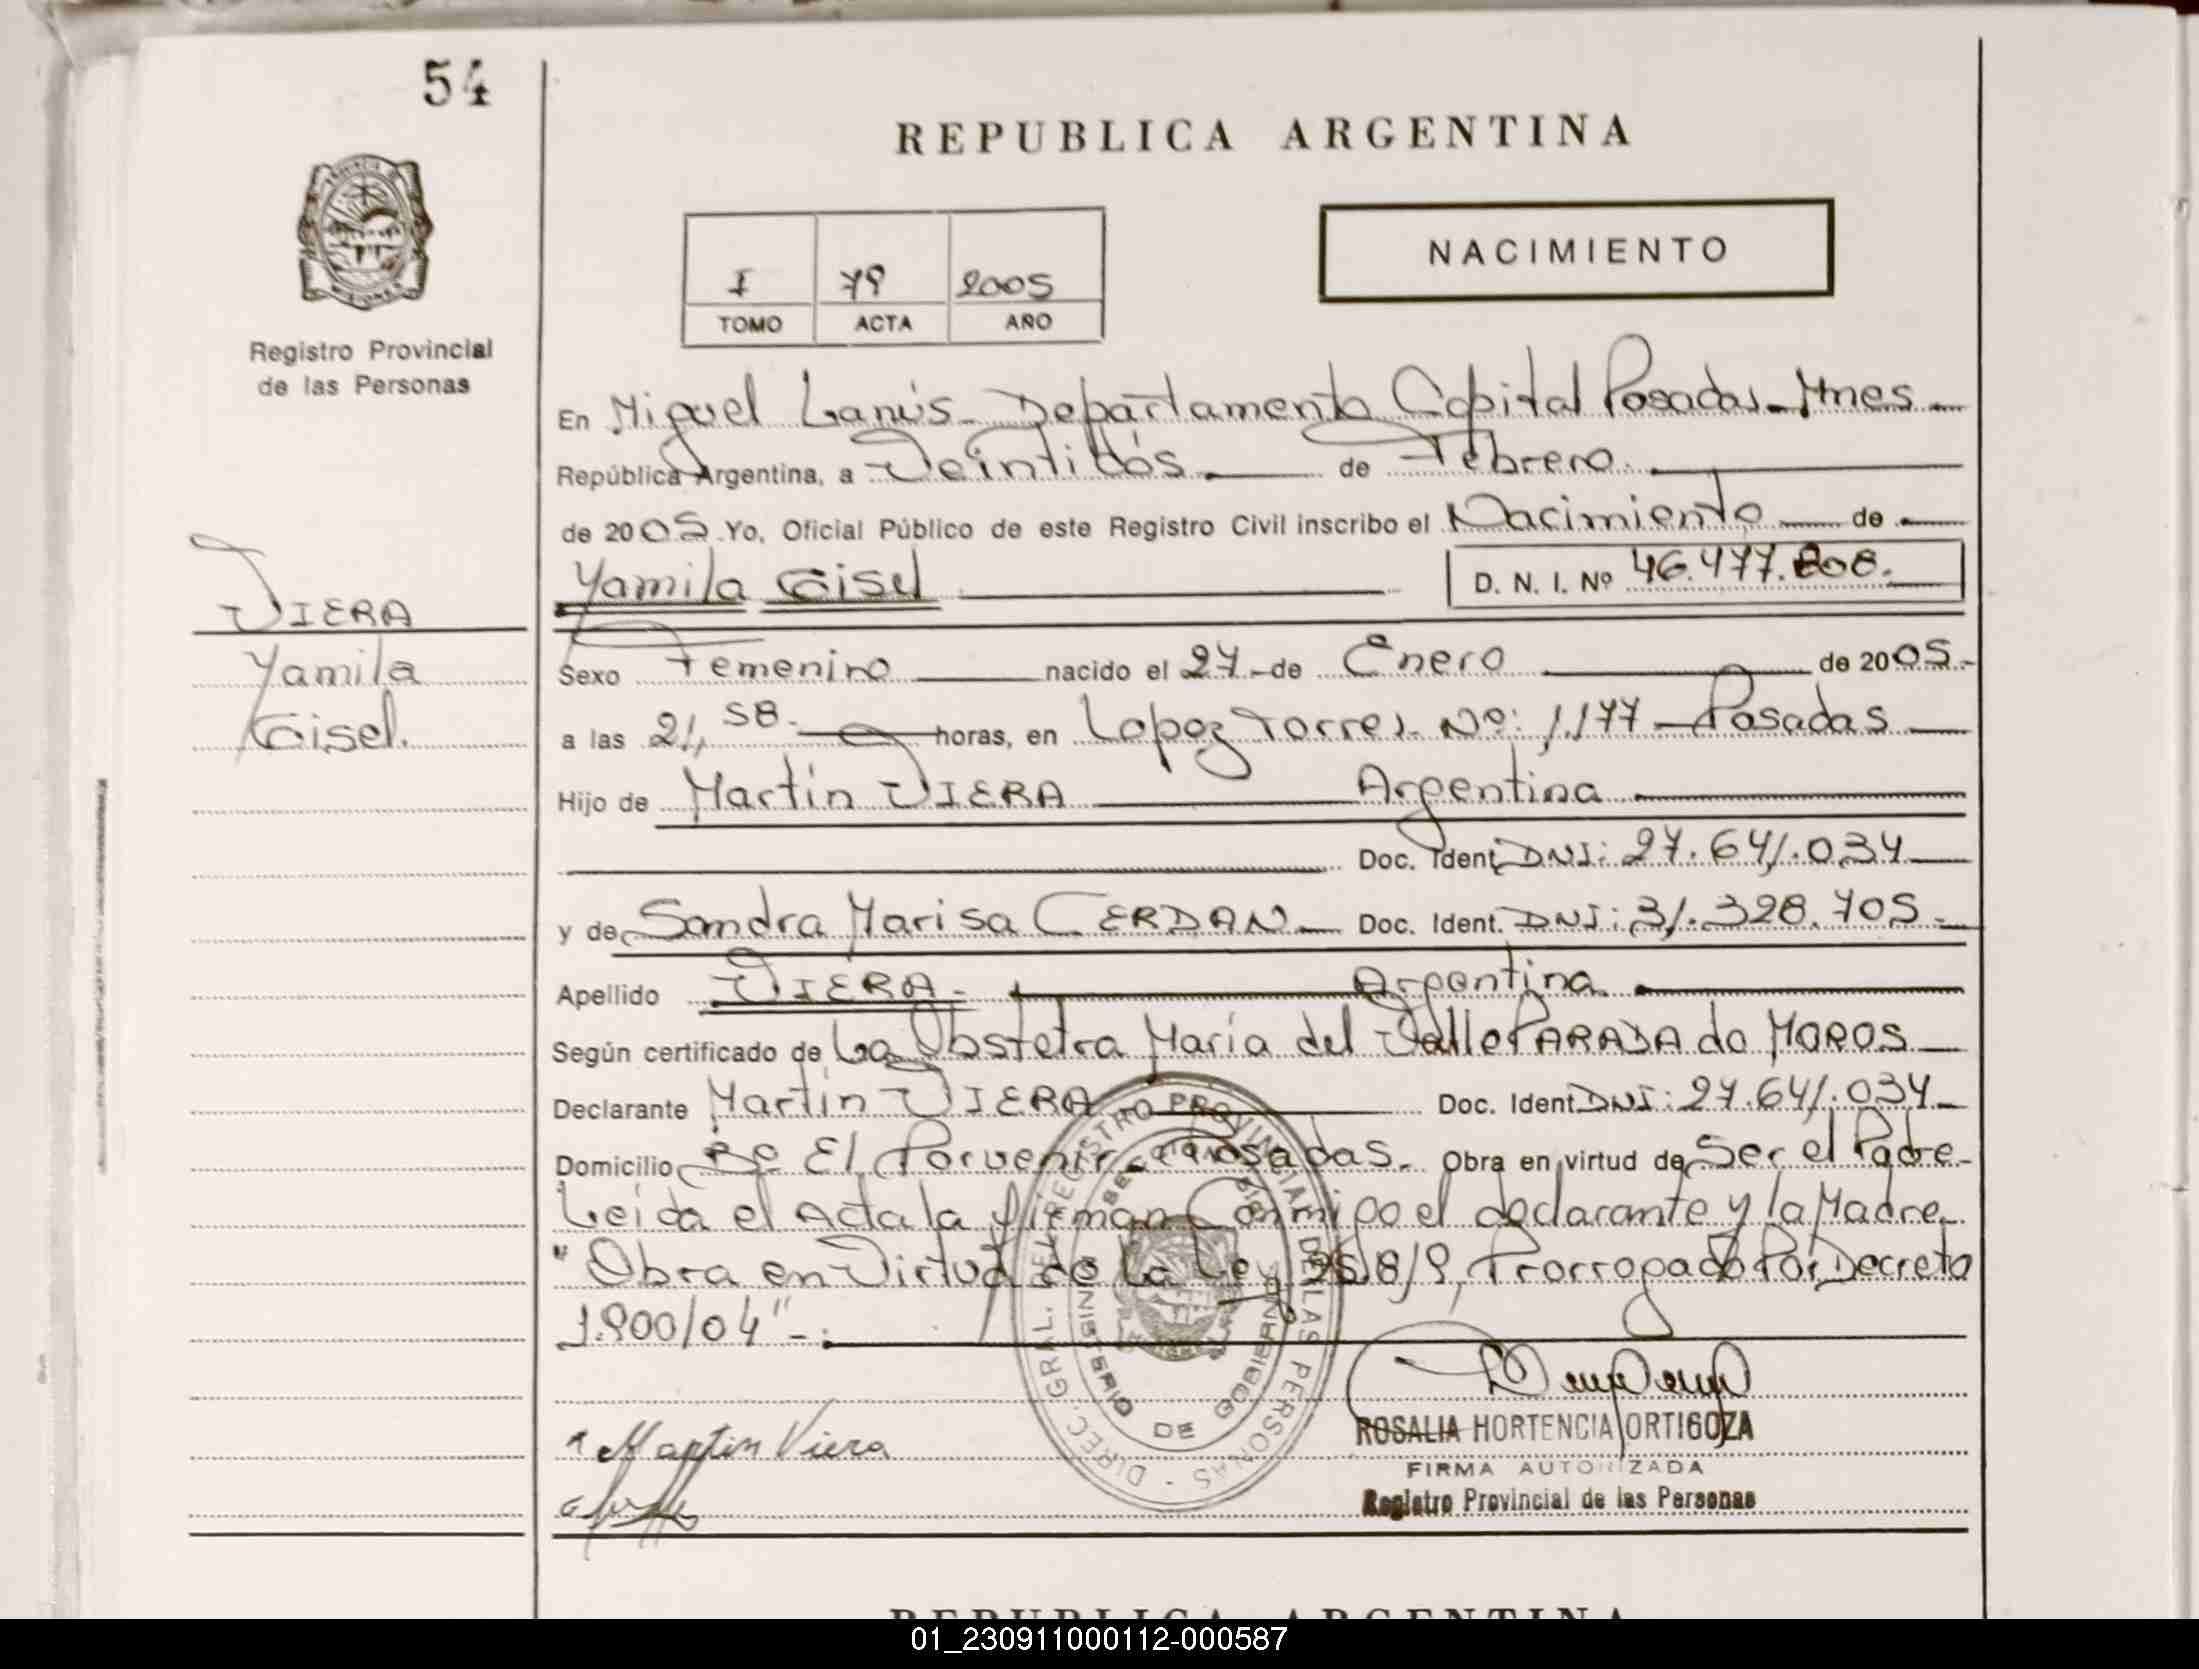 54
REPUBLICA ARGENTINA
I 79 2005
TOMO ACTA AÑO
NACIMIENTO
Registro Provincial
de las Personas
En Miguel Lanús - Departamento Capital Posadas - Mnes -
República Argentina, a Veintidós de Febrero
de 2005 Yo, Oficial Público de este Registro Civil inscribo el Nacimiento de
Yamila Gisel D. N. I. Nº 46.477.808.
VIERA
Yamila
Gisel.
Sexo Femenino nacido el 27 - de Enero de 2005 -
a las 21, 58 - horas, en Lopez Torres Nº: 1.177 - Posadas
Hijo de Martín VIERA Argentina
Doc. Ident. DNI: 27.641.034
y de Sandra Marisa CERDAN - Doc. Ident. DNI: 31.328.705 -
Apellido VIERA - Argentina
Según certificado de La Obstetra María del Valle de MOROS
Declarante Martín VIERA Doc. Ident DNI: 27.641.034 -
Domicilio Bº El Porvenir - Posadas. Obra en virtud de Ser el Padre -
Leída el Acta la firman Conmigo el declarante y la Madre -
"Obra en Virtud de la Ley 25.819, Prorrogado Por Decreto
1.900/04" - .
DIREC. GRAL. DEL REGISTRO PROVINCIAL DE LAS PERSONAS
MINISTERIO DE GOBIERNO
Martin Viera
ROSALIA HORTENCIA ORTIGOZA
FIRMA AUTORIZADA
Registro Provincial de las Personas
REPUBLICA ARGENTINA
01_230911000112-000587